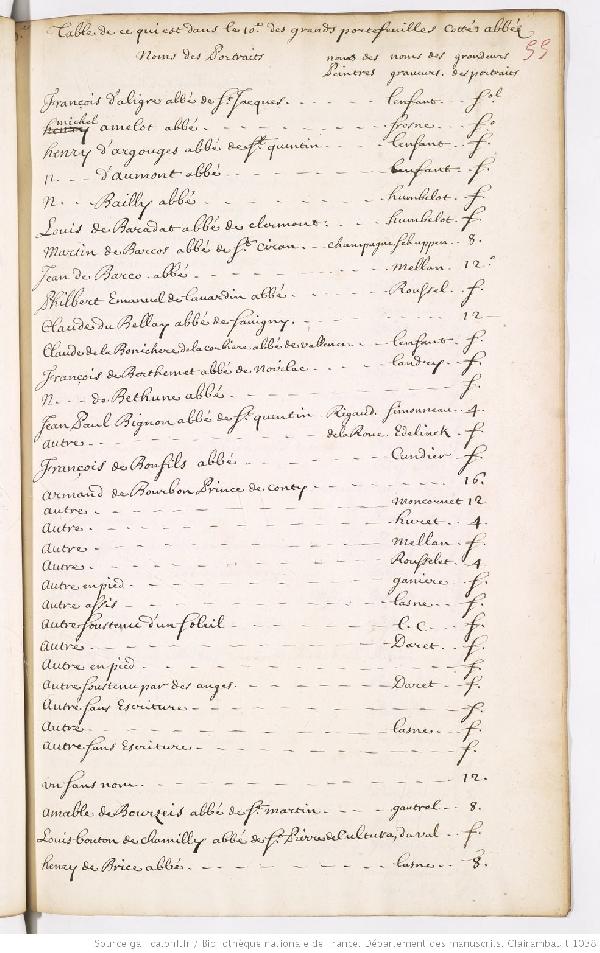 Table de ce qui est dans le 10e. des grands portefeuilles cottés abbés
99
Noms des Portraits noms des Peintres noms des graveurs. grandeurs des portraits
François D'aligre abbé de St. Jacques. lenfant. fol.
henry michel amelot abbé fresne. fo.
henry D'argouges abbé de St. quentin lenfant. f.
N. D'aumont abbé lenfant. f.
N. Bailly abbé humbelot. f.
Louis de Baradat abbé de clermont: humbelot. f.
Martin de Barcos abbé de St. Ciran. champagne Schuppen. 8.
Jean de Barco. abbé. Mellan. 12o.
Philbert Emanuel de Lavardin abbé. Roussel. f.
Claude du Bellay abbé de Savigny. 12
Claude de la abbé de lenfant. f.
François de Berthemet abbé de Noirlac landry. f.
N. de Bethune abbé f.
Jean Paul Bignon abbé de St. quentin Rigaud. Simonneau. 4.
autre. de la Roue. Edelinck. f.
François de Bonfils abbé Cundier. f.
armand de Bourbon Prince de conty 16.
autre. moncornet 12
autre. huret. 4.
autre. Mellan. f.
autre. Rousselet. 4
autre en pied. ganiere. f.
autre assis lasne. f.
autre soustenu d'un soleil l. C. f.
autre. Daret. f.
autre en pied. f.
autre soustenu par des anges. Daret. f.
autre sans Escriture f.
autre lasne. f.
autre sans Escriture f.
un sans nom. 12.
amable de Bourzeis abbé de St. martin gautrol. 8.
Louis bouton de chamilly abbé de St. Pierre de Cultura, du val. f.
henry de Brice abbé. lasne. 8.
Source gallica.bnf.fr / Bibliothèque nationale de France. Département des manuscrits. Clairambault 1038